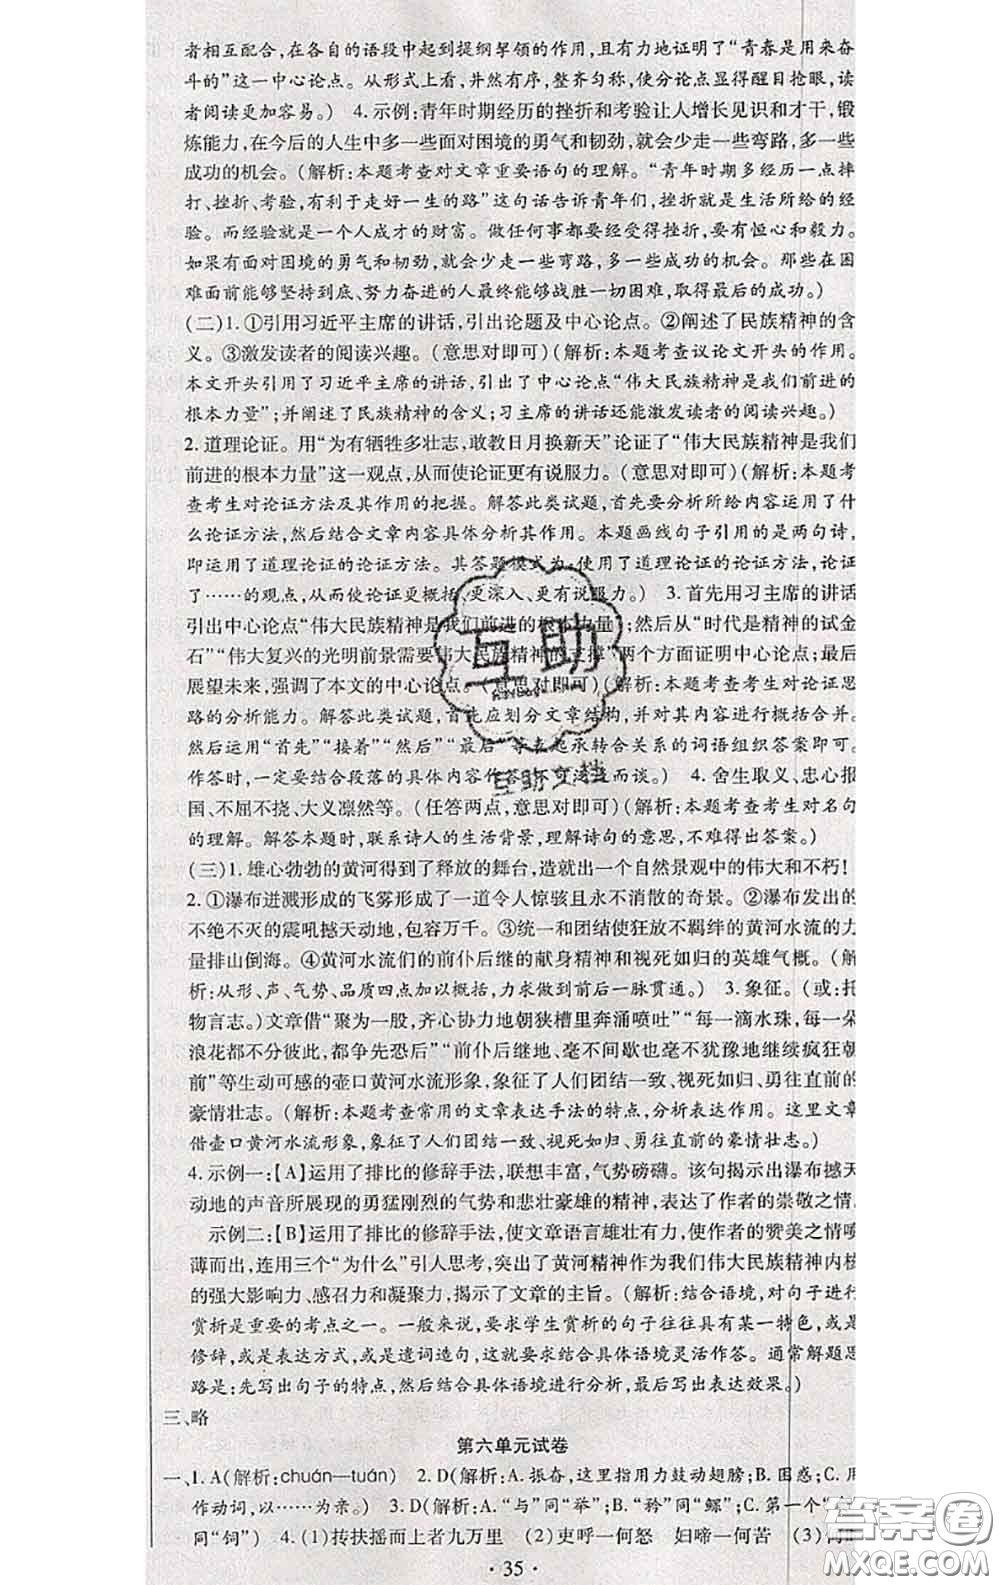 者相互配合,在各自的语段中起到提纲挈领的作用,且有力地证明了“青春是用来奋
斗的”这一中心论点。从形式上看,井然有序,整齐匀称,使分论点显得醒目抢眼,读
者阅读更加容易。) 4. 示例:青年时期经历的挫折和考验让人增长见识和才干,锻
炼能力,在今后的人生中多一些面对困境的勇气和韧劲,就会少走一些弯路,多一些
成功的机会。(解析:本题考查对文章重要语句的理解。“青年时期多经历一点摔
打、挫折、考验,有利于走好一生的路”这句话告诉青年们,挫折就是生活所给的经
验。而经验就是一个人成才的财富。做任何事都要经受得挫折,要有恒心和毅力。
如果有面对困境的勇气和韧劲,就会少走一些弯路,多一些成功的机会。那些在困
难面前能够坚持到底、努力奋进的人最终能够战胜一切困难,取得最后的成功。)
(二)1. ①引用习近平主席的讲话,引出论题及中心论点。②阐述了民族精神的含
义。③激发读者的阅读兴趣。(意思对即可)(解析:本题考查议论文开头的作用。
本文开头引用了习近平主席的讲话,引出了中心论点“伟大民族精神是我们前进的
根本力量”;并阐述了民族精神的含义;习主席的讲话还能激发读者的阅读兴趣。)
2. 道理论证。用“为有牺牲多壮志,敢教日月换新天”论证了“伟大民族精神是我们
前进的根本力量”这一观点,从而使论证更有说服力。(意思对即可)(解析:本题考
查考生对论证方法及其作用的把握。解答此类试题,首先要分析所给内容运用了什
么论证方法,然后结合文章内容具体分析其作用。本题画线句子引用的是两句诗,
即运用了道理论证的论证方法。其答题模式为:使用了道理论证的论证方法,论证
了……的观点,从而使论证更有说服力、更深入、更有说服力。) 3. 首先用习主席的讲话
引出中心论点“伟大民族精神是我们前进的根本力量”;然后从“时代是精神的试金
石”“伟大复兴的光明前景需要伟大民族精神的支撑”两个方面证明中心论点;最后
展望未来,强调了本文的中心论点。(意思对即可)(解析:本题考查考生对议论思
路的分析能力。解答此类试题,首先应划分文章结构,并对其内容进行概括合并。
然后运用“首先”“接着”“然后”“最后”等表起承转合关系的词语组织答案即可。
作答时,一定要结合段落的具体内容作答,不可泛泛而谈。) 4. 舍生取义、忠心报
国、不屈不挠、大义凛然等。(任答两点,意思对即可)(解析:本题考查考生对名句
的理解。解答本题时,联系诗人的生活背景,理解诗句的意思,不难得出答案。)
(三)1. 雄心勃勃的黄河得到了释放的舞台,造就出一个自然景观中的伟大和不朽!
2. ①瀑布迸溅形成的飞雾形成了一道令人惊骇且永不消散的奇景。②瀑布发出的
不绝不灭的震吼撼天动地,包容万千。③统一和团结使狂放不羁绊的黄河水流的力
量排山倒海。④黄河水流们的前仆后继的献身精神和视死如归的英雄气概。(解
析:从形、声、气势、品质四点加以概括,力求做到前后一脉贯通。) 3. 象征。(或:托
物言志。)文章借“聚为一股,齐心协力地朝狭槽里奔涌喷吐”“每一滴水珠,每一朵
浪花都不分彼此,都争先恐后”“前仆后继地、毫不间歇也毫不犹豫地继续疯狂朝
前”等生动可感的壶口黄河水流形象,象征了人们团结一致、视死如归、勇往直前的
豪情壮志。(解析:本题考查常用的文章表达手法的特点,分析表达作用。这里文章
借壶口黄河水流形象,象征了人们团结一致、视死如归、勇往直前的豪情壮志。)
4. 示例一:【A】运用了排比的修辞手法,联想丰富,气势磅礴。该句揭示出瀑布撼天
动地的声音所展现的勇猛刚烈的气势和悲壮豪雄的精神,表达了作者的崇敬之情。
示例二:【B】运用了排比的修辞手法,使文章语言雄壮有力,使作者的赞美之情喷
薄而出,连用三个“为什么”引人思考,突出了黄河精神作为我们伟大民族精神内核
的强大影响力、感召力和凝聚力,揭示了文章的主旨。(解析:结合语境,对句子进行
赏析是重要的考点之一。一般来说,要求学生赏析的句子往往具有某一特色,或
修辞,或是表达方式,或是遣词造句,这就要求结合具体语境灵活作答。通常解题思
路是:先写出句子的特点,然后结合具体语境进行分析,最后写出表达效果。)
三、略
第六单元试卷
一、1. A(解析:chuán—tuán) 2. D(解析:A. 振奋,这里指用力鼓动翅膀;B. 困惑;C. 用
作动词,以……为亲。) 3. D(解析:A.“与”同“举”;B.“矜”同“鳏”;C. 第一个“
同“饲”) 4. (1)抟扶摇而上者九万里 (2)吏呼一何怒 妇啼一何苦 (3)何时
· 35 ·
互助
互助文档
答案圈
MXQE.COM